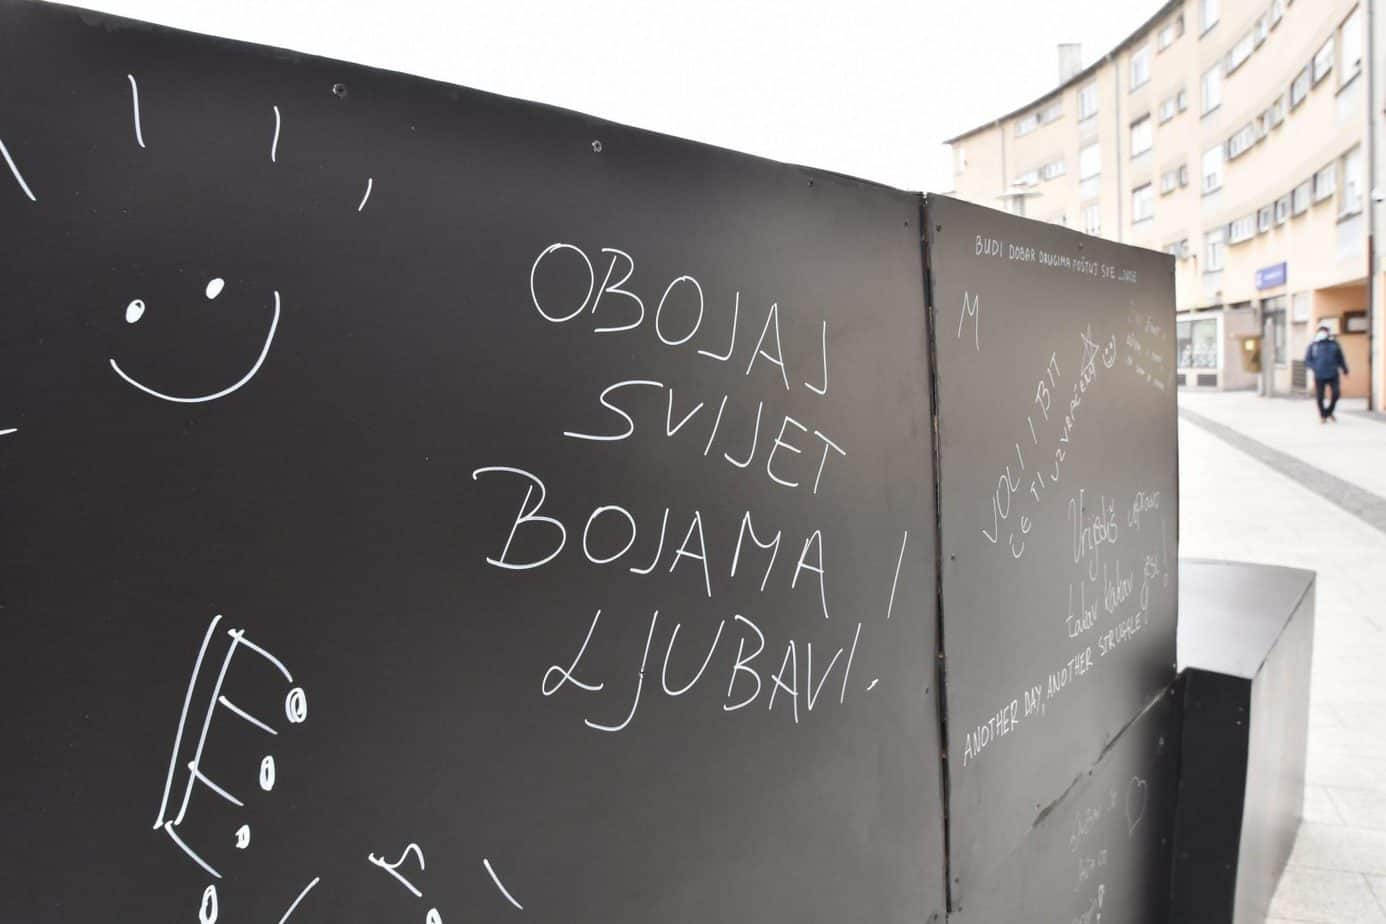 OBOJAJ
SVIJET
BOJAMA
LJUBAVI!
BUDI DOBAR DRUGIMA POŠTUJ SVE LJUDE
M
VOLI I BIT
ĆE TI UZVRAĆENO
Vrijediš upravo
takav kakav jesi!
ANOTHER DAY, ANOTHER STRUGGLE!